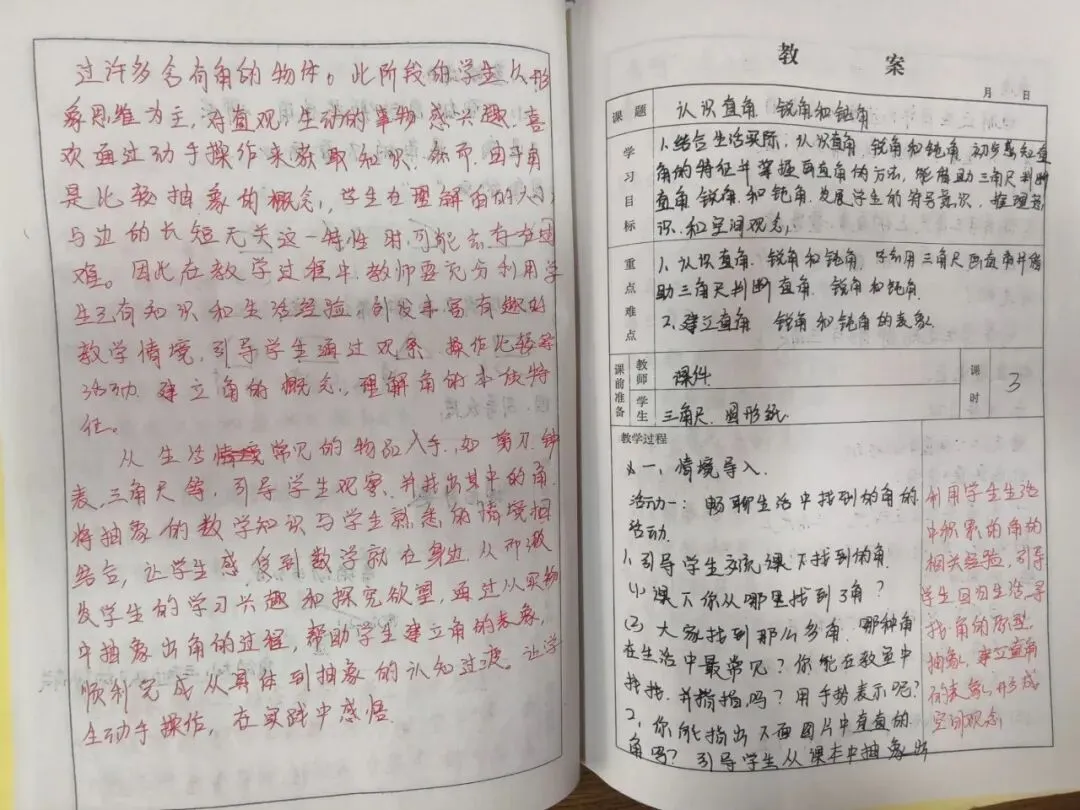 过许多含有角的物体。此阶段的学生以形
象思维为主，对直观、生动的事物感兴趣，喜
欢通过动手操作来获取知识。然而，由于角
是比较抽象的概念，学生在理解角的大小
与边的长短无关这一特性时，可能会存在困
难。因此在教学过程中，教师要充分利用学
生已有知识和生活经验，创设丰富有趣的
教学情境，引导学生通过观察、操作、比较等
活动，建立角的概念，理解角的本质特
征。
从生活常见的物品入手，如剪刀、钟
表、三角尺等，引导学生观察，并找出其中的角，
将抽象的数学知识与学生熟悉的情境相
结合，让学生感受到数学就在身边，从而激
发学生的学习兴趣和探究欲望，通过从实物
中抽象出角的过程，帮助学生建立角的表象，
顺利完成从具体到抽象的认知过渡。让学
生动手操作，在实践中感悟
教案
月 日
课题
认识直角、锐角和钝角
学习目标
1.结合生活实际，认识直角、锐角和钝角，初步感知直
角的特征并掌握画直角的方法，能借助三角尺判断
直角、锐角、和钝角，发展学生的符号意识、推理意
识、和空间观念。
重点难点
1、认识直角、锐角和钝角，会利用三角尺画直角并借
助三角尺判断直角、锐角和钝角
2、建立直角、锐角和钝角的表象
课前准备
教师
课件
学生
三角尺、圆形纸
课时
3
教学过程
一、情境导入
活动一：畅聊生活中找到的角的
活动
1、引导学生交流课下找到的角
(1)课下你从哪里找到了角？
(2)大家找到那么多角，哪种角
在生活中最常见？你能在教室中
找找，并指指吗？用手势表示呢？
2、你能指出下面图片中直直的
角吗？引导学生从课本中抽象出
利用学生生活
中积累的角的
相关经验，引导
学生回归生活，寻
找角的原型，
抽象、建立直角
的表象，形成
空间观念